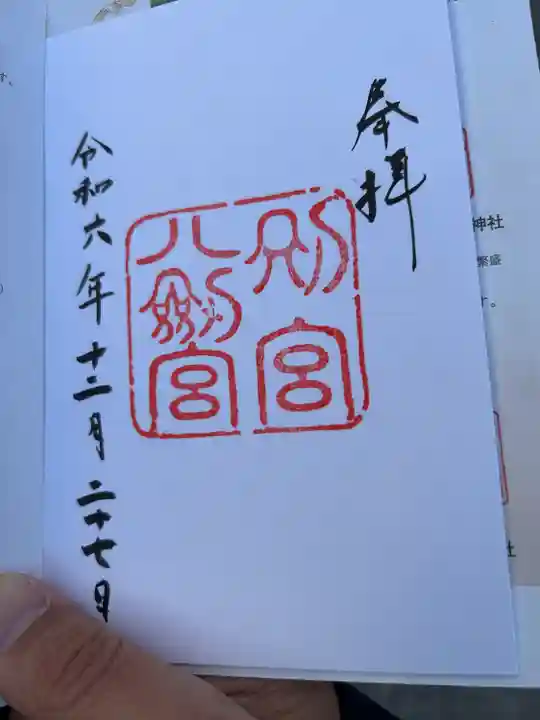 奉拝
別宮
八劔宮
令和六年十二月二十七日
神社
繁盛
す。
社